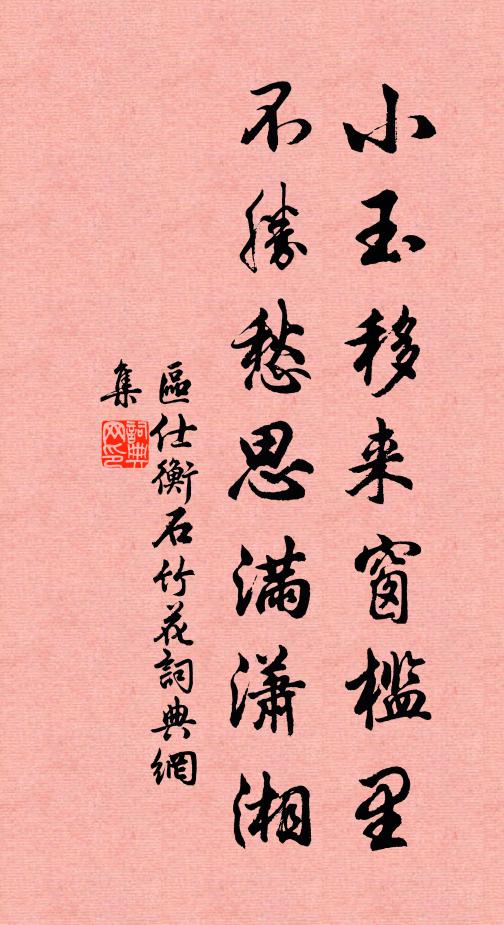 小玉移来窗槛里
不勝愁思满潇湘
區仕衡石竹花詞典網
集
詞典网印